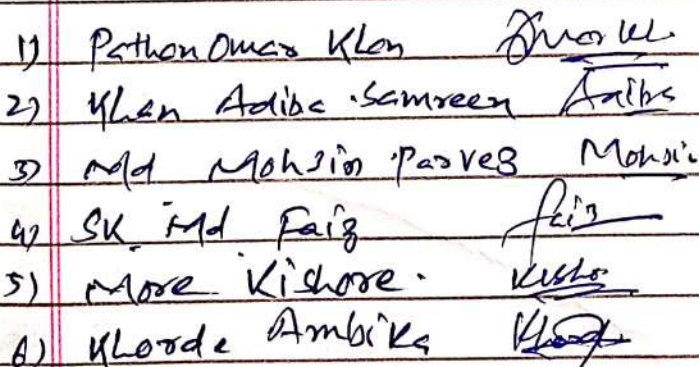 1) Pathan Omar Khan Omar kh
2) Khan Adiba Samreen Adiba
3) Md Mohsin Parvez Mohsin
4) SK Md Faiz faiz
5) More Kishore. Kisho
6) Khorde Ambika Khorde